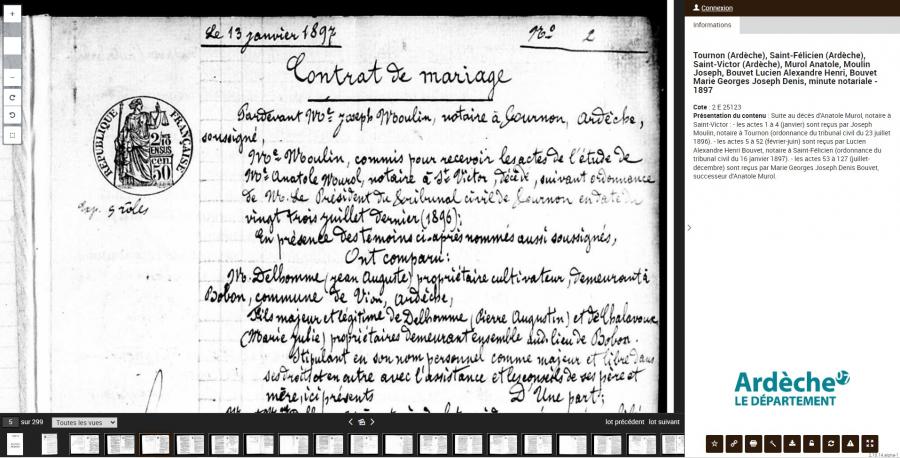 Connexion
Informations
Tournon (Ardèche), Saint-Félicien (Ardèche),
Saint-Victor (Ardèche), Murol Anatole, Moulin
Joseph, Bouvet Lucien Alexandre Henri, Bouvet
Marie Georges Joseph Denis, minute notariale -
1897
Cote : 2 E 25123
Présentation du contenu : Suite au décès d'Anatole Murol, notaire à
Saint-Victor : - les actes 1 à 4 (janvier) sont reçus par Joseph
Moulin, notaire à Tournon (ordonnance du tribunal civil du 23 juillet
1896). - les actes 5 à 52 (février-juin) sont reçus par Lucien
Alexandre Henri Bouvet, notaire à Saint-Félicien (ordonnance du
tribunal civil du 16 janvier 1897). - les actes 53 à 127 (juillet-
décembre) sont reçus par Marie Georges Joseph Denis Bouvet,
successeur d'Anatole Murol.
Ardèche 07
LE DÉPARTEMENT
Le 13 janvier 1897
No 2
Contrat de mariage
RÉPUBLIQUE FRANÇAISE
cen
50
Exp. 9 rôles
Pardevant Me Joseph Moulin, notaire à Tournon, Ardèche,
soussigné,
Me Moulin, commis pour recevoir les actes de l'étude de
Me Anatole Murol, notaire à St Victor, décédé, suivant ordonnance
de M. Le Président du tribunal civil de Tournon en date du
vingt trois juillet dernier (1896);
En présence des temoins ci-après nommés aussi soussignés,
Ont comparu:
M. Delhomme (Jean Auguste) propriétaire cultivateur, demeurant à
Bobon, commune de Vion, Ardèche,
Fils majeur et légitime de Delhomme (Pierre Augustin) et de Chalavoux
(Marie Julie) propriétaires demeurant ensemble aud. lieu de Bobon.
Stipulant en son nom personnel comme majeur et libre dans
ses droits et en outre avec l'assistance et les conseils de ses père et
mère, ici présents D'Une part;
5 sur 299 Toutes les vues lot précédent lot suivant